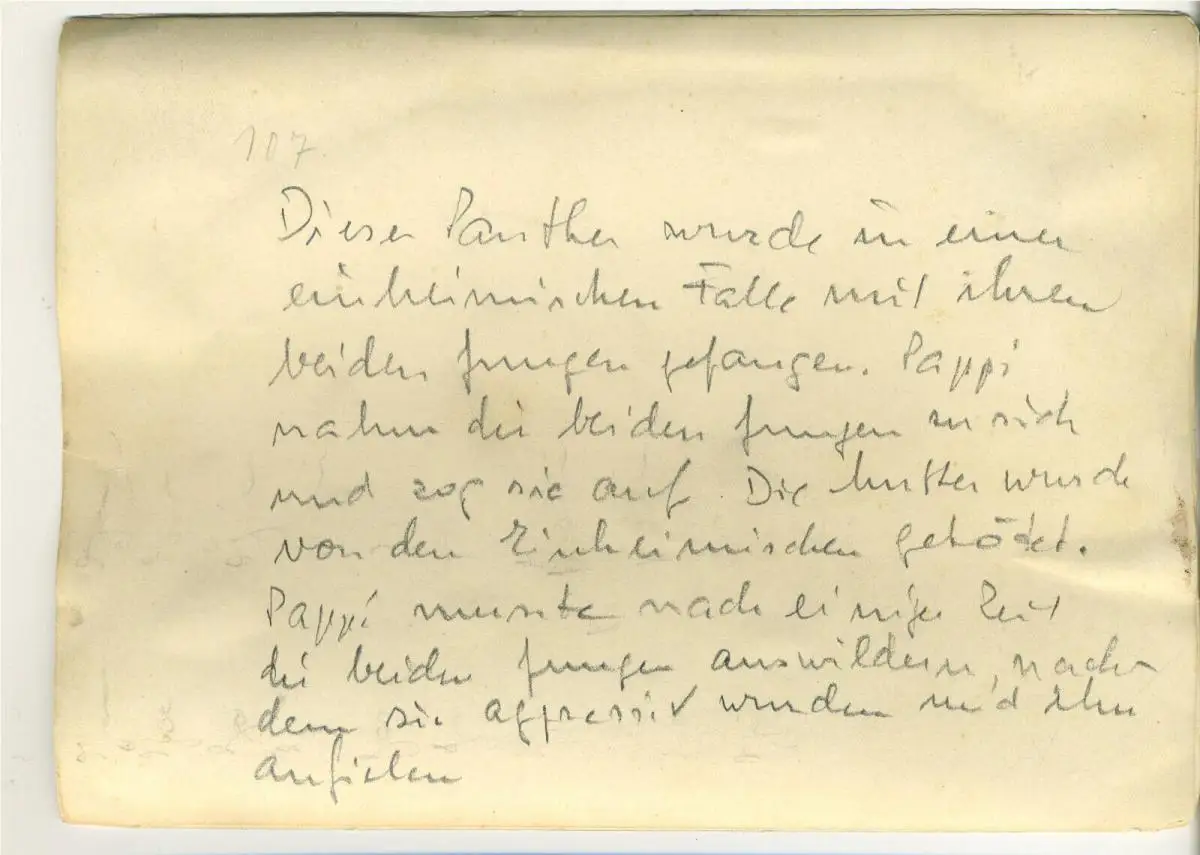 107.
Dieser Panther wurde in einer
einheimischen Falle mit ihren
beiden Jungen gefangen. Pappi
nahm die beiden Jungen zu sich
und zog sie auf. Die Mutter wurde
von den Einheimischen getötet.
Pappi musste nach einiger Zeit
die beiden Jungen auswildern, nach-
dem sie aggressiv wurden und ihn
anfielen